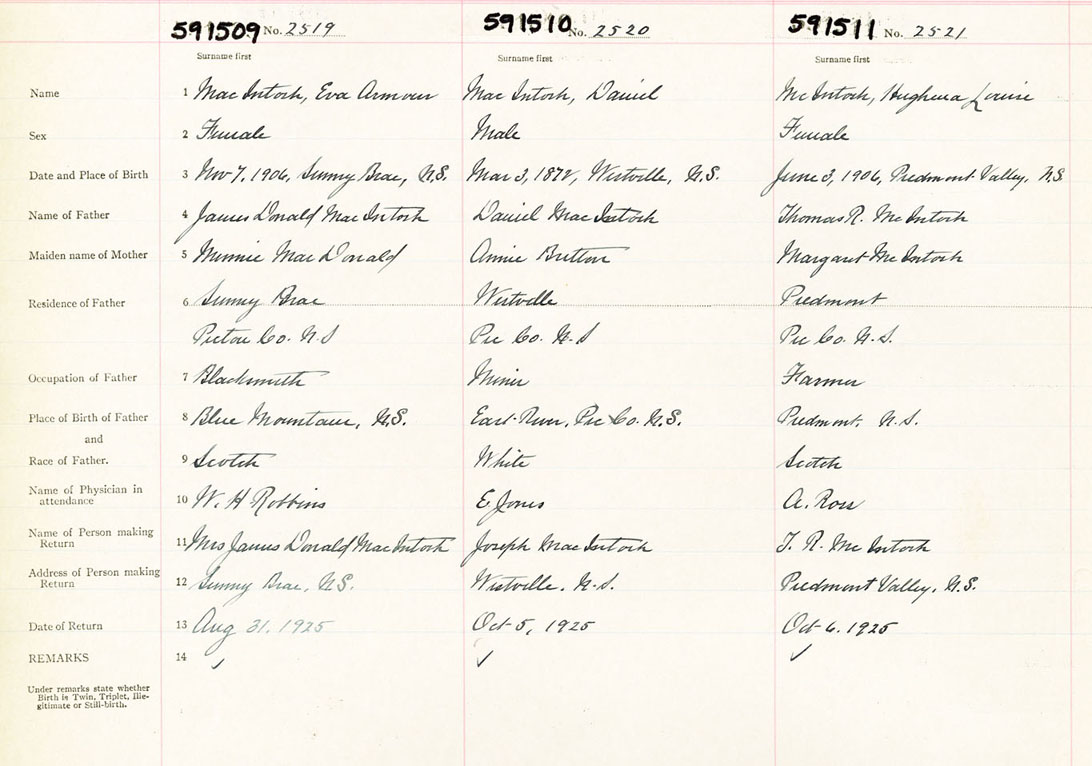 591509 No. 2519 591510 No. 2520 591511 No. 2521
Surname first Surname first Surname first
Name 1 Mac Intosh, Eva Armour Mac Intosh, Daniel Mc Intosh, Hughena Louise
Sex 2 Female Male Female
Date and Place of Birth 3 Nov 7, 1906, Sunny Brae, N.S. Mar 3, 1872, Westville, N.S. June 3, 1906, Piedmont Valley, N.S.
Name of Father 4 James Donald Mac Intosh Daniel Mac Intosh Thomas R. Mc Intosh
Maiden name of Mother 5 Minnie Mac Donald Annie Britton Margaret Mc Intosh
Residence of Father 6 Sunny Brae Westville Piedmont
Pictou Co. N.S Pic Co. N.S Pic Co. N.S.
Occupation of Father 7 Blacksmith Miner Farmer
Place of Birth of Father 8 Blue Mountain, N.S. East River, Pic Co. N.S. Piedmont, N.S.
and
Race of Father. 9 Scotch White Scotch
Name of Physician in
attendance 10 W. H Robbins E Jones A. Ross
Name of Person making
Return 11 Mrs James Donald Mac Intosh Joseph Mac Intosh T. R. Mc Intosh
Address of Person making
Return 12 Sunny Brae, N.S. Westville, N.S. Piedmont Valley, N.S.
Date of Return 13 Aug 31, 1925 Oct 5, 1925 Oct 6. 1925
REMARKS 14 ✓ ✓ ✓
Under remarks state whether
Birth is Twin, Triplet, Ille-
gitimate or Still-birth.